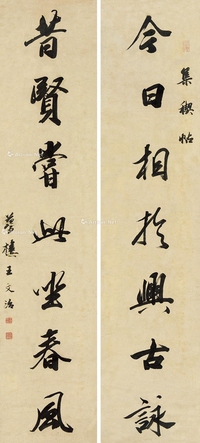 集禊帖
今日相於興古詠
昔賢嘗此坐春風
夢樓王文治